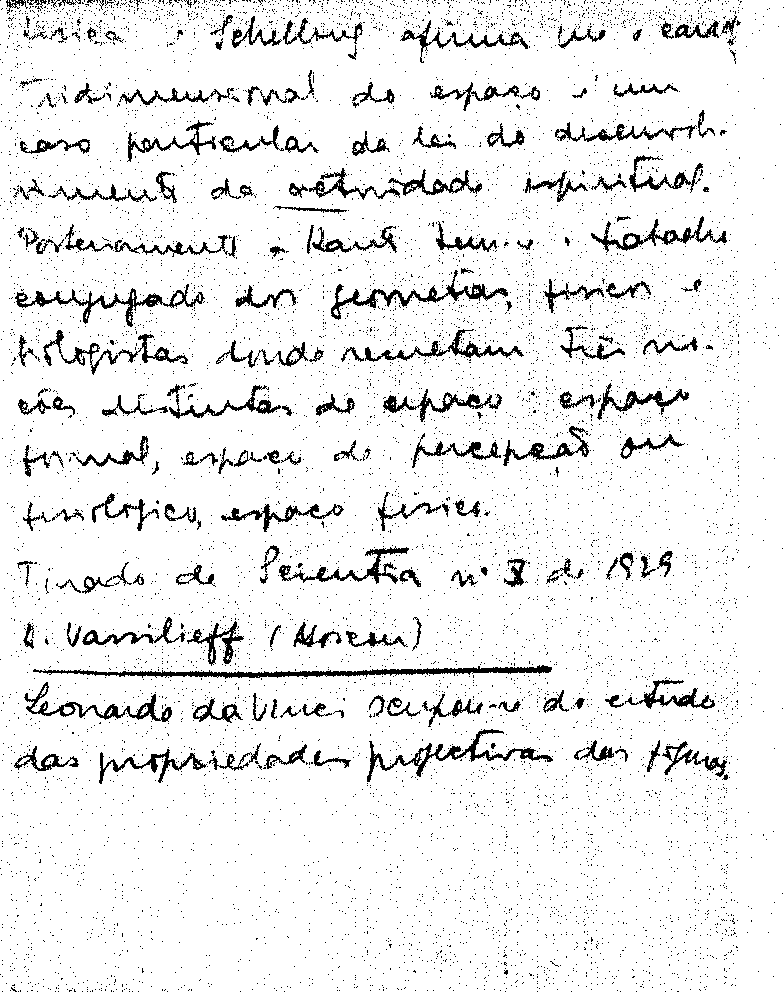 física e Schelling afirma que o carác
tridimensional do espaço é um
caso particular da lei do desenvol-
vimento da actividade espiritual.
Posteriormente a Kant o trabalho
conjugado dos geómetras, físicos e
biologistas donde resultam três no-
ções distintas de espaço: espaço
formal, espaço de percepção ou
fisiológico, espaço físico.
Tirado de Scientia nº X de 1929
A. Vassilieff (Moscou)
Leonardo da Vinci ocupou-se do estudo
das propriedades projectivas das figuras.